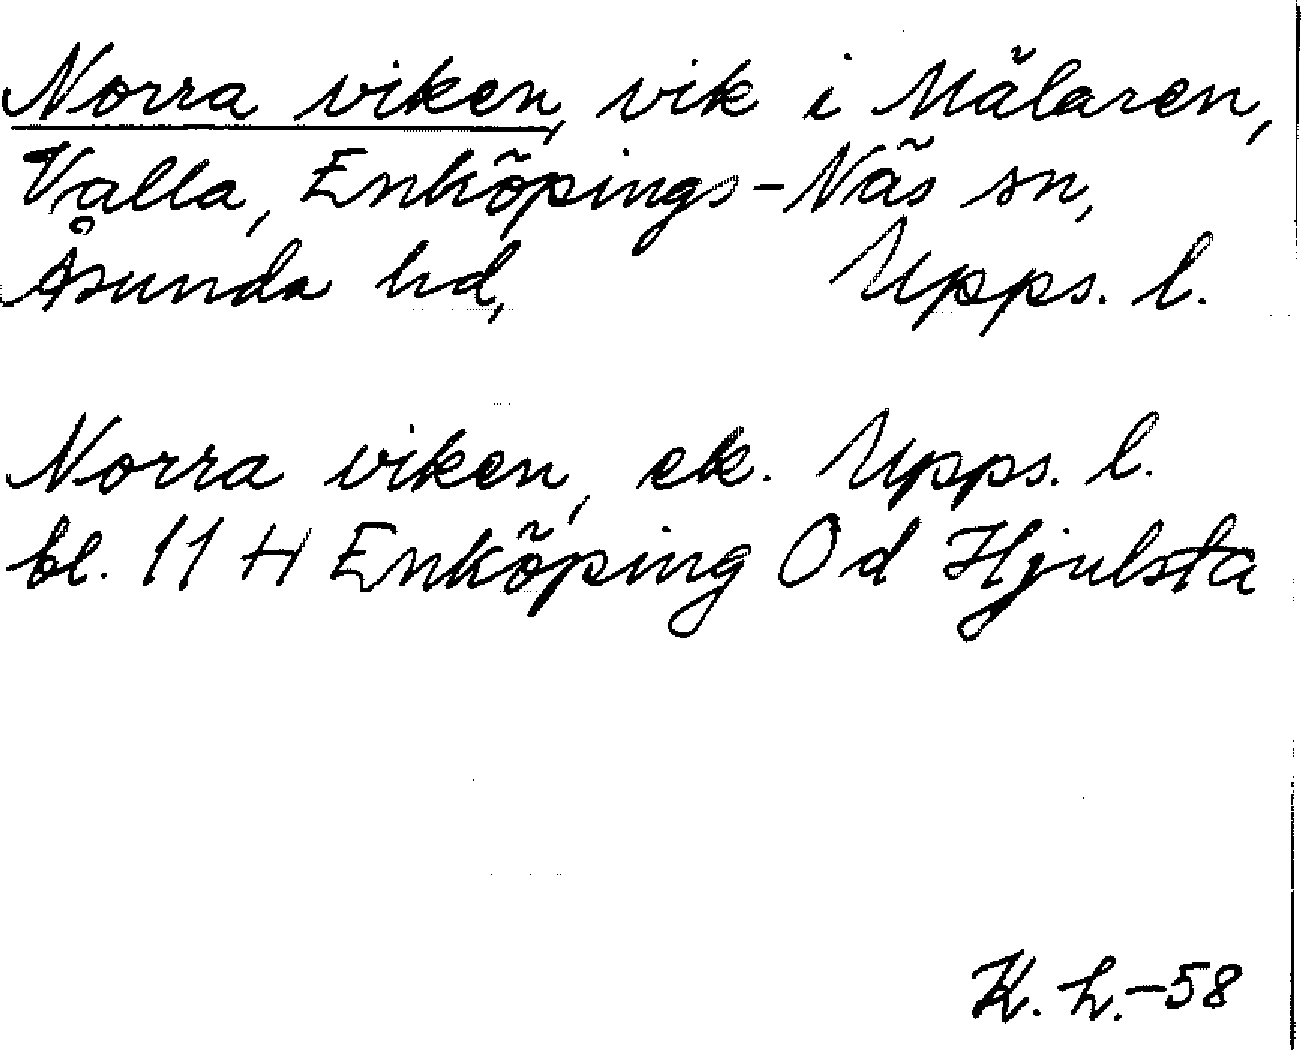 Norra viken, vik i Mälaren,
Valla, Enköpings-Näs sn,
Åsunda hd, Upps. l.
Norra viken, ek. Upps. l.
bl. 11 H Enköping Od Hjulsta
K. L.-58